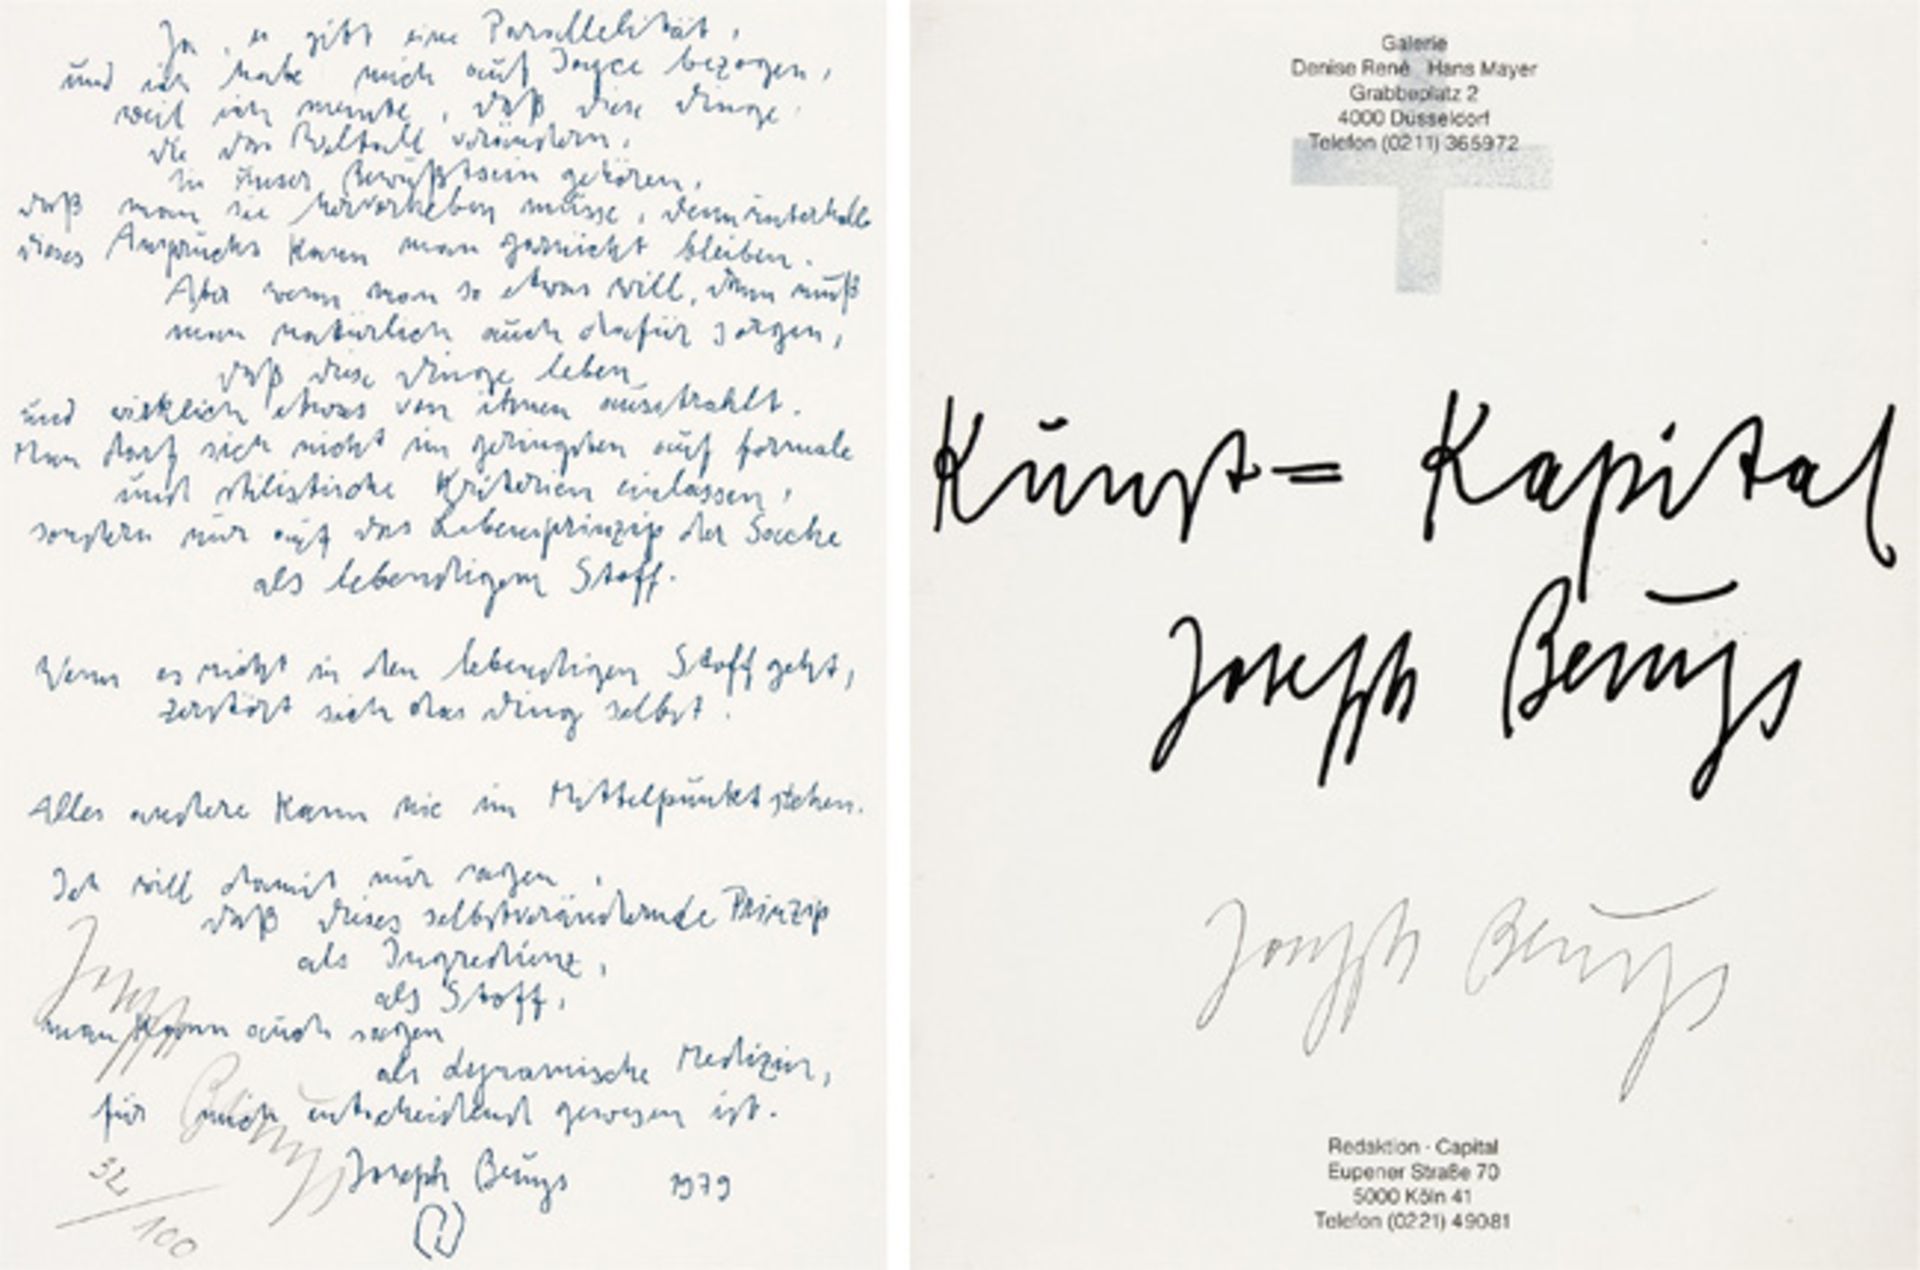 Ja, es gibt eine Parallelität,
und ich habe mich auf Joyce bezogen,
weil ich meinte, daß diese Dinge,
die das Weltall verändern,
in unser Bewußtsein gehören,
daß man sie hervorheben müsse, denn unterhalb
dieses Anspruchs kann man garnicht bleiben.
Aber wenn man so etwas will, dann muß
man natürlich auch dafür sorgen,
daß diese Dinge leben
und wirklich etwas von ihnen ausstrahlt.
Man darf sich nicht im geringsten auf formale
und stilistische Kriterien einlassen,
sondern nur auf das Lebensprinzip der Sache
als lebendigem Stoff.
Wenn es nicht in den lebendigen Stoff geht,
zerstört sich das Ding selbst.
Alles andere kann nie im Mittelpunkt stehen.
Ich will damit nur sagen,
daß dieses selbstverändernde Prinzip
als Ingredienz,
als Stoff,
man kann auch sagen
als dynamische Medizin,
für mich entscheidend gewesen ist.
Joseph Beuys 1979
Joseph
Beuys
32/100
Galerie
Denise René Hans Mayer
Grabbeplatz 2
4000 Düsseldorf
Telefon (0211) 365972
Kunst = Kapital
Joseph Beuys
Joseph Beuys
Redaktion - Capital
Eupener Straße 70
5000 Köln 41
Telefon (0221) 49081